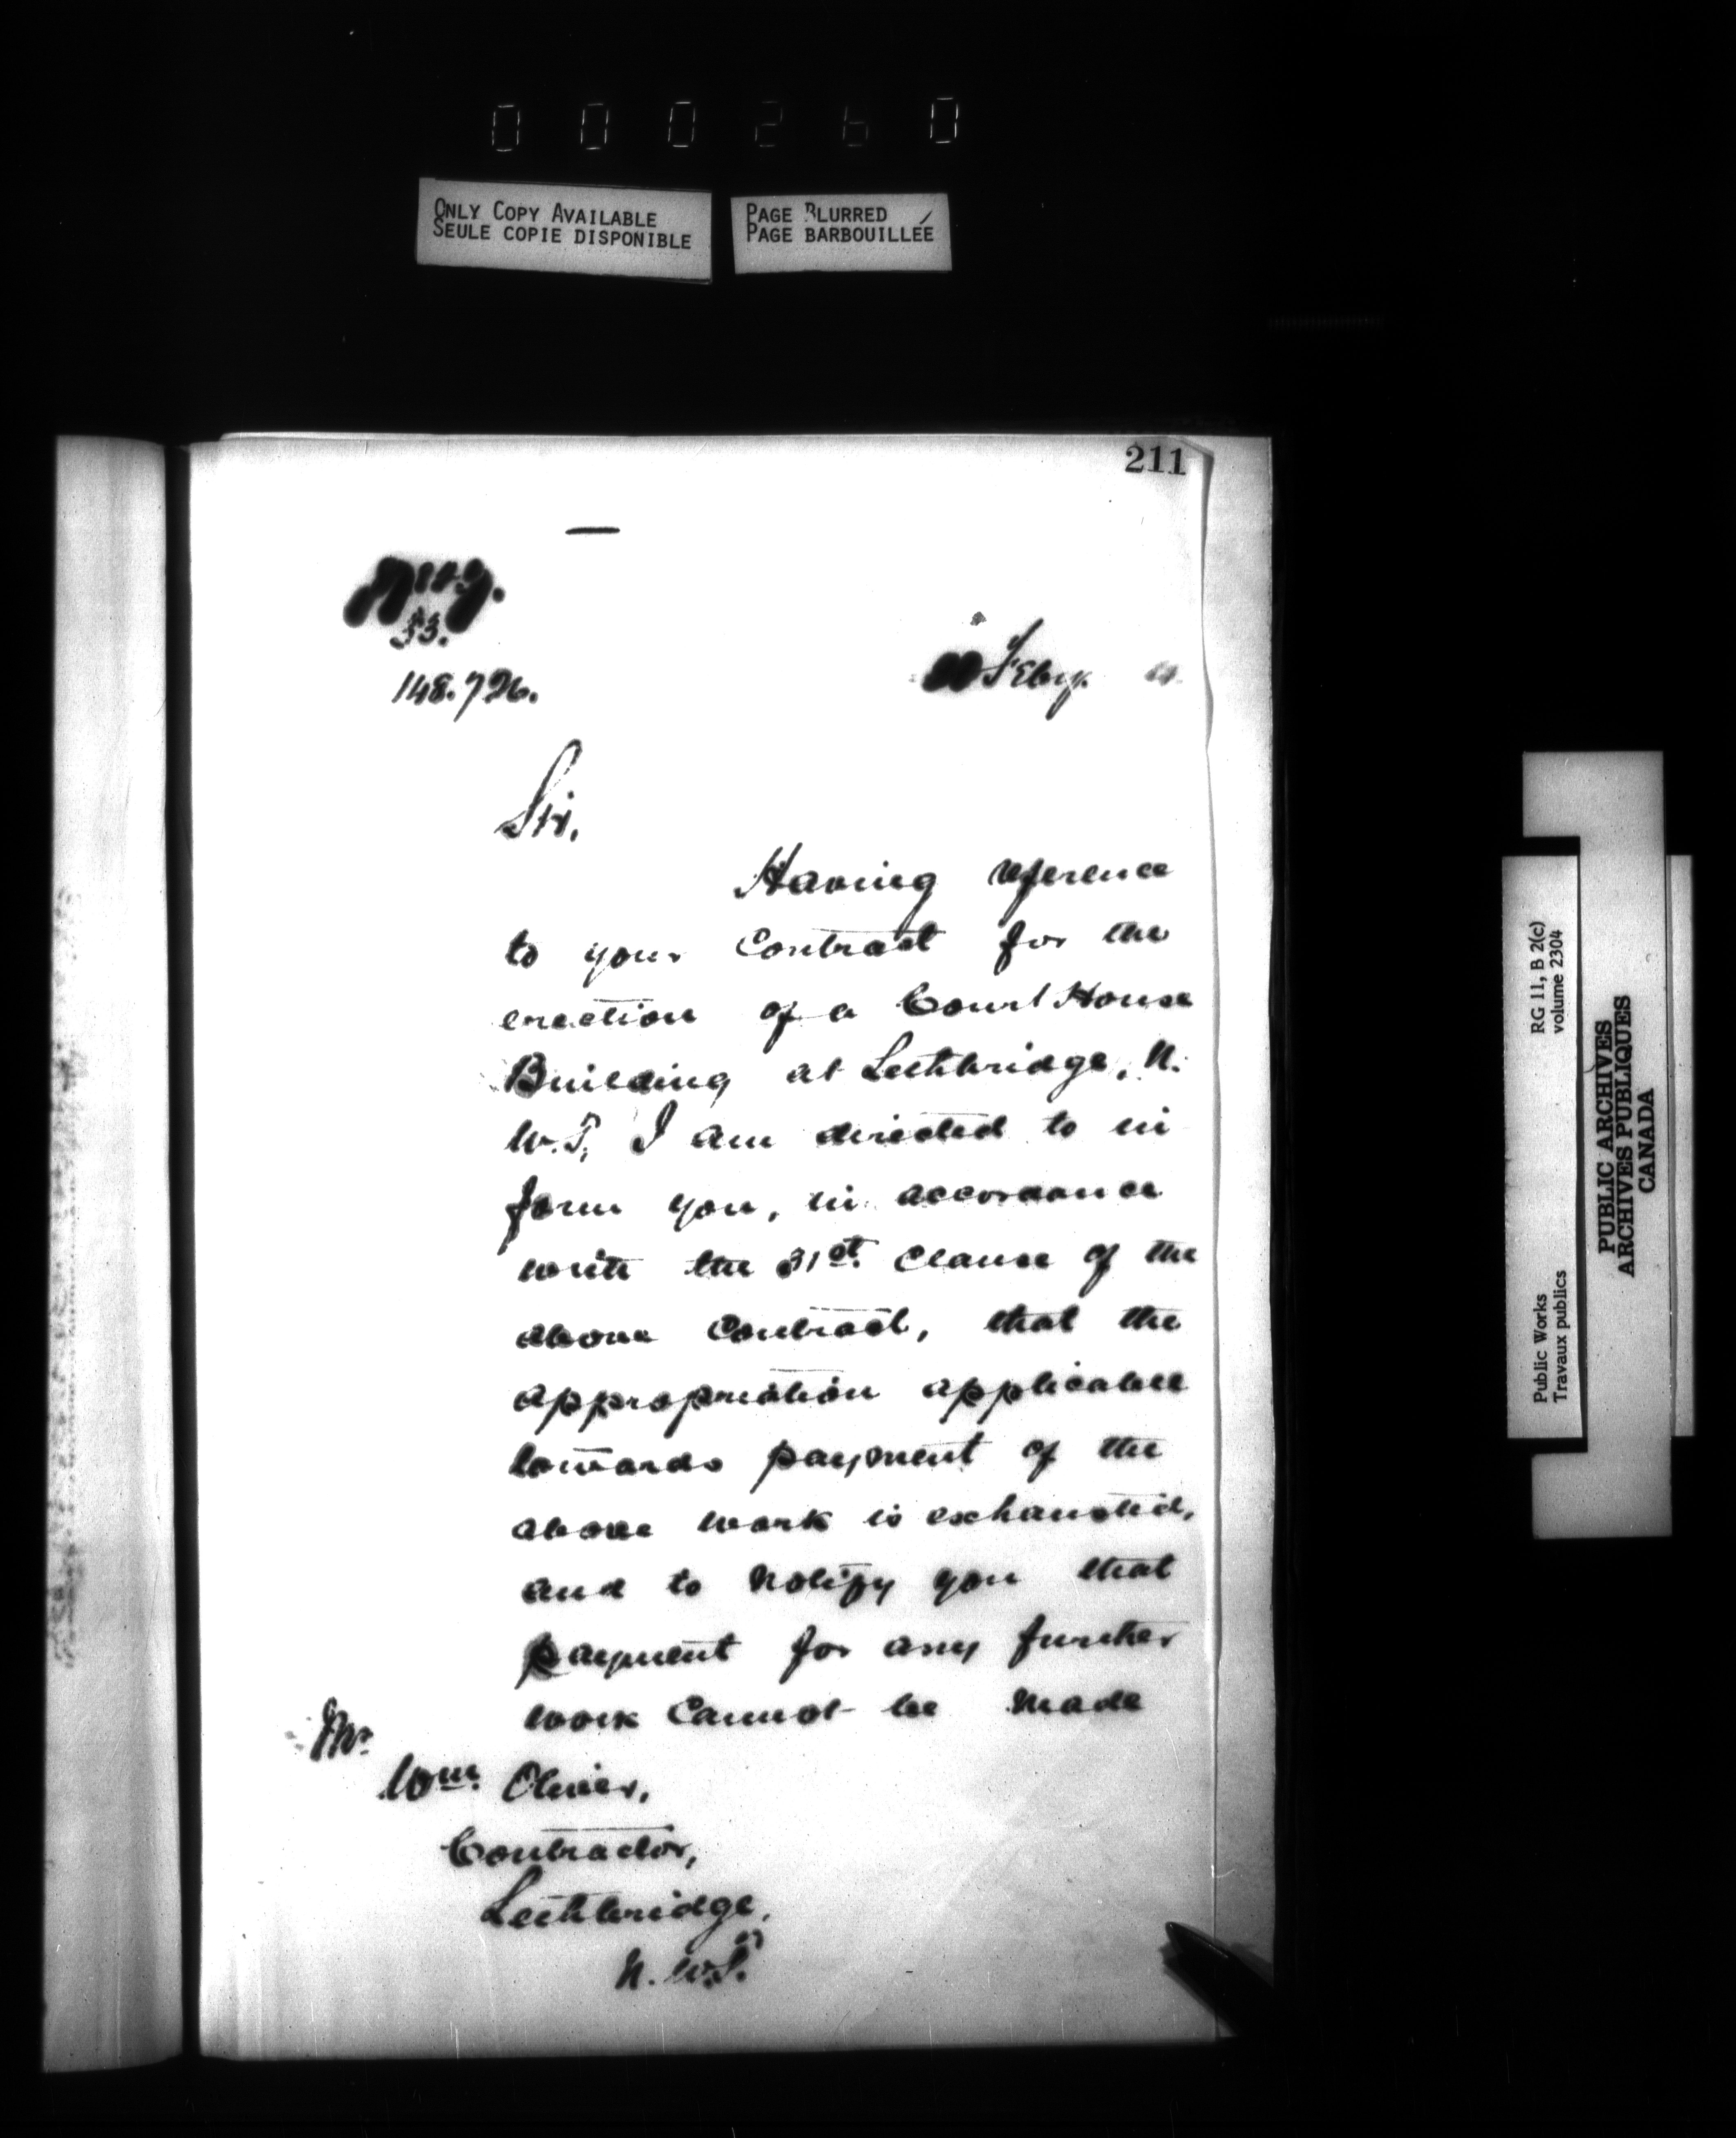 000260
ONLY COPY AVAILABLE
SEULE COPIE DISPONIBLE
PAGE BLURRED
PAGE BARBOUILLÉE
211
33.
148.726.
Feby.
Sir,
Having reference
to your Contract for the
erection of a Court House
Building at Lethbridge, N.
W.T, I am directed to in
form you, in accordance
with the 31st. Clause of the
above Contract, that the
appropriation applicable
towards payment of the
above work is exhausted,
and to notify you that
payment for any further
work Cannot be made
Mr.
Wm. Oliver,
Contractor,
Lethbridge,
N.W.T.
RG 11, B 2(c)
volume 2304
Public Works
Travaux publics
PUBLIC ARCHIVES
ARCHIVES PUBLIQUES
CANADA